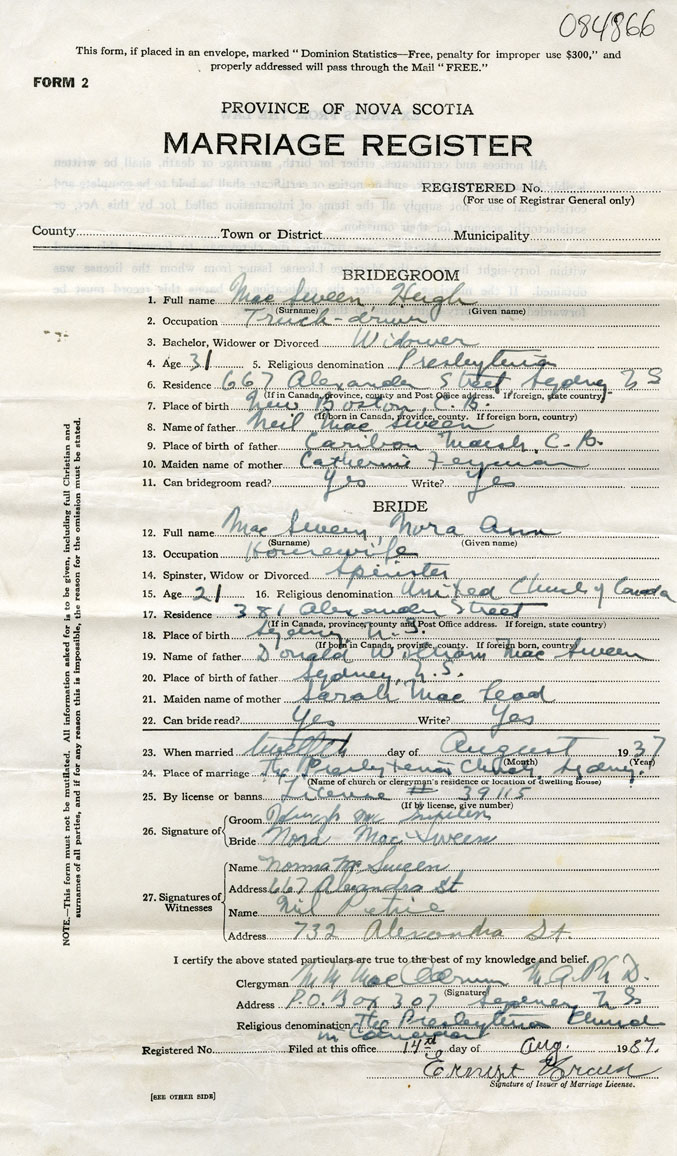 084866
This form, if placed in an envelope, marked " Dominion Statistics—Free, penalty for improper use $300," and
properly addressed will pass through the Mail " FREE."
FORM 2
PROVINCE OF NOVA SCOTIA
MARRIAGE REGISTER
REGISTERED No.
(For use of Registrar General only)
County Town or District Municipality
BRIDEGROOM
1. Full name Mac Sween, Hugh
(Surname) (Given name)
2. Occupation Truck-driver
3. Bachelor, Widower or Divorced Widower
4. Age 31 5. Religious denomination Presbyterian
6. Residence 667 Alexander Street Sydney N S
(If in Canada, province, county and Post Office address. If foreign, state country)
7. Place of birth New Boston, C. B.
(If born in Canada, province, county. If foreign born, country)
8. Name of father Neil Mac Sween
9. Place of birth of father Caribou Marsh, C. B.
10. Maiden name of mother Catherine
11. Can bridegroom read? Yes Write? Yes
BRIDE
12. Full name Mac Sween, Nora Ann
(Surname) (Given name)
13. Occupation Housewife
14. Spinster, Widow or Divorced Spinster
15. Age 21 16. Religious denomination United Church of Canada
17. Residence 381 Alexander Street
(If in Canada, province, county and Post Office address. If foreign, state country)
18. Place of birth Sydney N. S.
(If born in Canada, province, county. If foreign born, country)
19. Name of father Donald William Mac Sween
20. Place of birth of father Sydney, N. S.
21. Maiden name of mother Sarah Mac Leod
22. Can bride read? Yes Write? Yes
23. When married twelfth day of August 1937
(Month) (Year)
24. Place of marriage The Presbyterian Church, Sydney.
(Name of church or clergyman's residence or location of dwelling house)
25. By license or banns License # 39115
(If by license, give number)
26. Signature of
Groom Hugh
Bride Nora MacSween
27. Signatures of Witnesses
Name Norma Mc Sween
Address 667 Alexandra St
Name Neil Petrie
Address 732 Alexandra St.
I certify the above stated particulars are true to the best of my knowledge and belief.
Clergyman M. A. Ph D.
(Signature)
Address P.O. Box 307 Sydney N S
Religious denomination The Presbyterian Church
in Canada
Registered No. Filed at this office 14 day of Aug. 1937.
Ernest
Signature of Issuer of Marriage License.
[SEE OTHER SIDE]
NOTE.—This form must not be mutilated. All information asked for is to be given, including full Christian and
surnames of all parties, and if for any reason this is impossible, the reason for the omission must be stated.